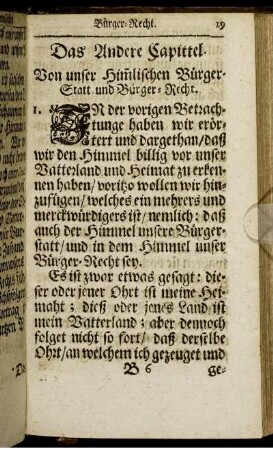 Bürger-Recht. 19
Das Andere Capittel.
Von unser Him̃lischen Bürger-
Statt und Bürger-Recht.
1. IN der vorigen Betrach-
tunge haben wir erör-
tert und dargethan/daß
wir den Himmel billig vor unser
Vatterland und Heimat zu erken-
nen haben/voritzo wollen wir hin-
zufügen/welches ein mehrers und
merckwürdigers ist/nemlich: daß
auch der Himmel unsere Bürger-
statt/und in dem Himmel unser
Bürger-Recht sey.
Es ist zwar etwas gesagt: die-
ser oder jener Ohrt ist meine Hei-
maht; dieß oder jenes Land ist
mein Vatterland; aber dennoch
folget nicht so fort/ daß derselbe
Ohrt/an welchem ich gezeuget und
B 6 ge-